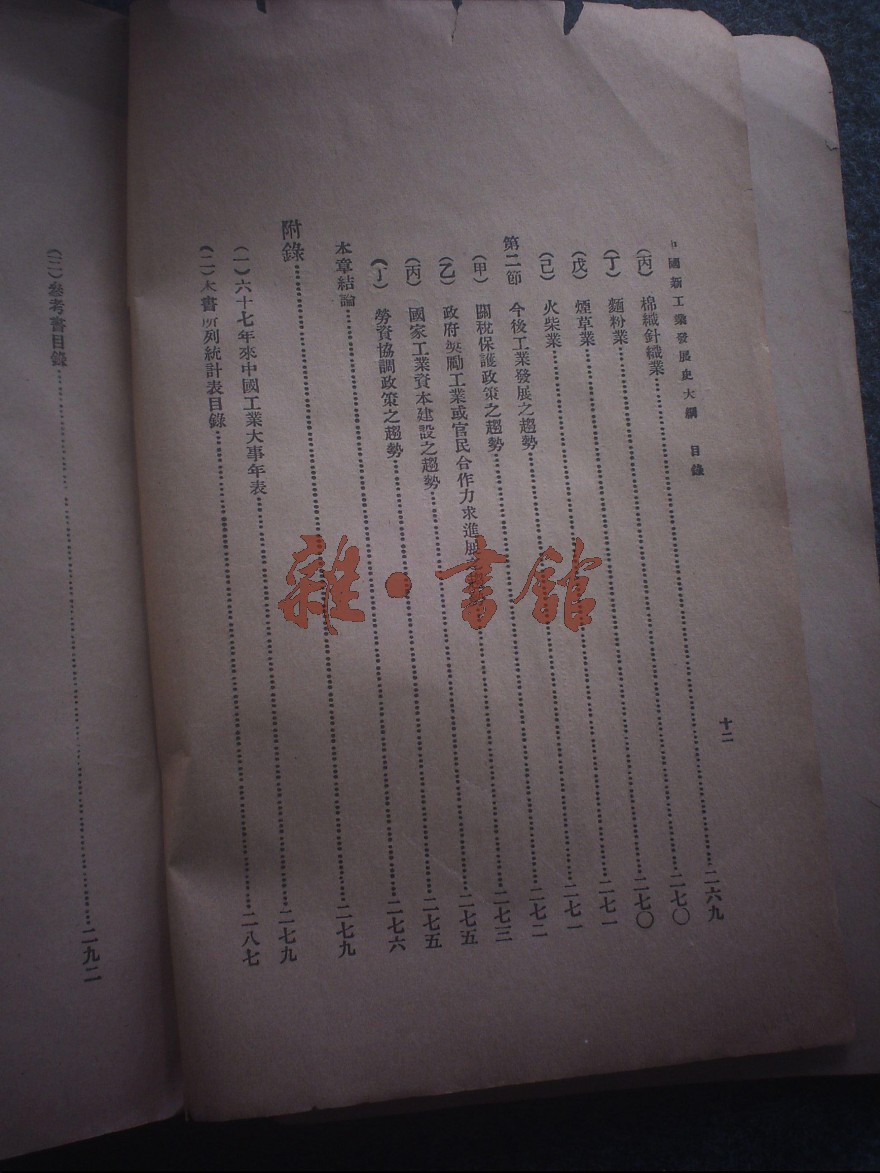 中國新工業發展史大綱　目錄　十二
（丙）棉織針織業……二六九
（丁）麵粉業……二七〇
（戊）煙草業……二七〇
（己）火柴業……二七一
第二節　今後工業發展之趨勢……二七一
（甲）關稅保護政策之趨勢……二七二
（乙）政府奬勵工業或官民合作力求進展……二七三
（丙）國家工業資本建設之趨勢……二七五
（丁）勞資協調政策之趨勢……二七五
本章結論……二七六
附錄……二七九
（一）六十七年來中國工業大事年表……二七九
（二）本書所列統計表目錄……二八七
（三）參考書目錄……二九二
雜·書館